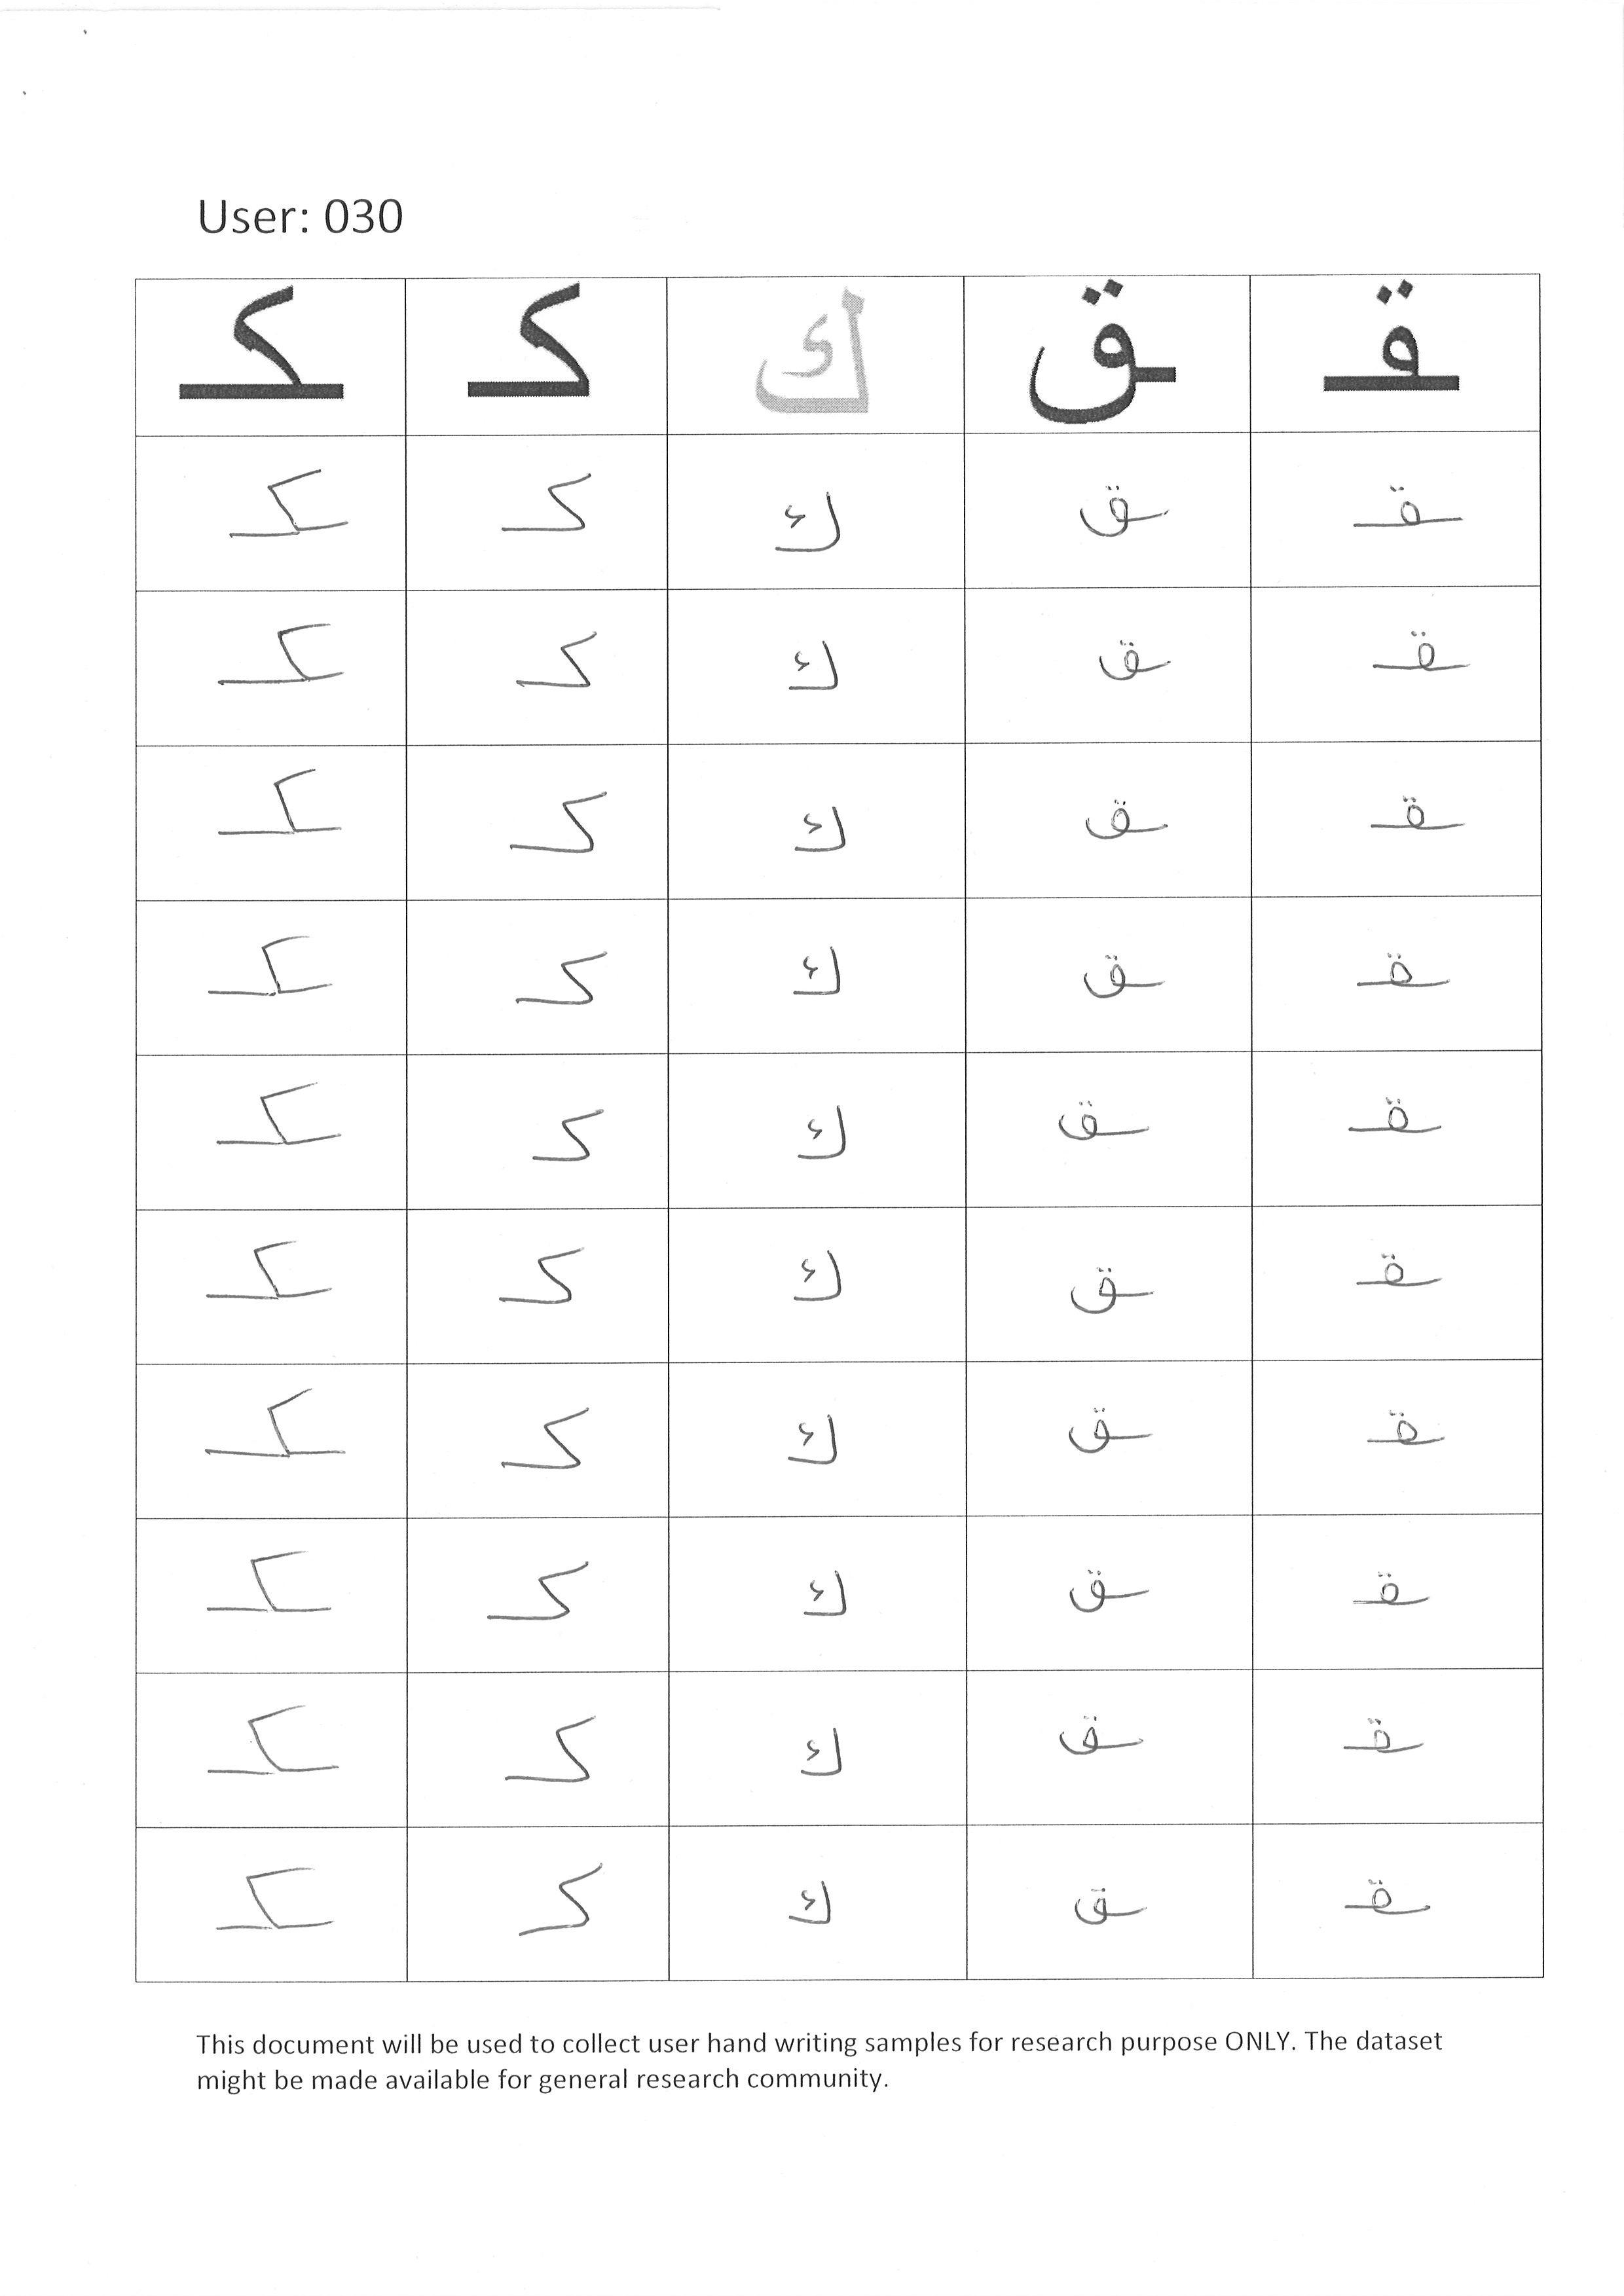 User: 030
ـكـ كـ ك ـق ـقـ
ـكـ كـ ك ـق ـقـ
ـكـ كـ ك ـق ـقـ
ـكـ كـ ك ـق ـقـ
ـكـ كـ ك ـق ـقـ
ـكـ كـ ك ـق ـقـ
ـكـ كـ ك ـق ـقـ
ـكـ كـ ك ـق ـقـ
ـكـ كـ ك ـق ـقـ
ـكـ كـ ك ـق ـقـ
ـكـ كـ ك ـق ـقـ
This document will be used to collect user hand writing samples for research purpose ONLY. The dataset
might be made available for general research community.